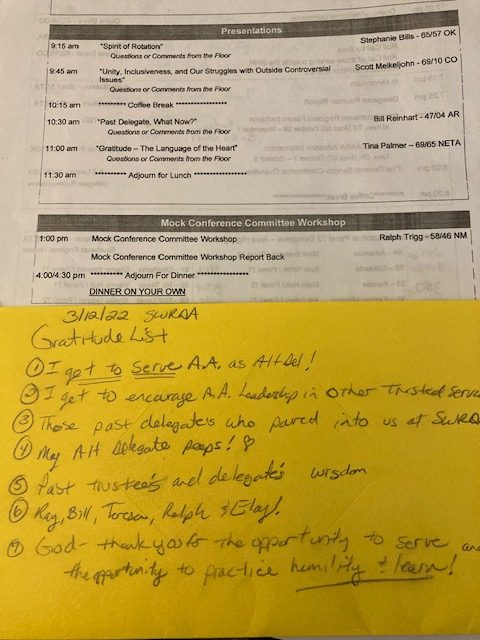 Presentations
9:15 am "Spirit of Rotation" Stephanie Bills - 65/57 OK
Questions or Comments from the Floor
9:45 am "Unity, Inclusiveness, and Our Struggles with Outside Controversial Scott Meikeljohn - 69/10 CO
Issues"
Questions or Comments from the Floor
10:15 am ********* Coffee Break *****************
10:30 am "Past Delegate, What Now?" Bill Reinhart - 47/04 AR
Questions or Comments from the Floor
11:00 am "Gratitude – The Language of the Heart" Tina Palmer – 69/65 NETA
Questions or Comments from the Floor
11:30 am ******** Adjourn for Lunch *****************
Mock Conference Committee Workshop
1:00 pm Mock Conference Committee Workshop Ralph Trigg - 58/46 NM
Mock Conference Committee Workshop Report Back
4:00/4:30 pm ********** Adjourn For Dinner ****************
DINNER ON YOUR OWN
3/12/22 SWRDA
Gratitude List
① I get to Serve A.A. as Alt Del!
② I get to encourage A.A. Leadership in other Trusted Serva
③ Those past delegates who poured into us at SWRDA
④ My Alt Delegate peeps! ♡
⑤ Past trustee's and delegate's wisdom
⑥ Ray, Bill, Teresa, Ralph &
⑦ God - thank you for the opportunity to serve and
the opportunity to practice humility & learn!